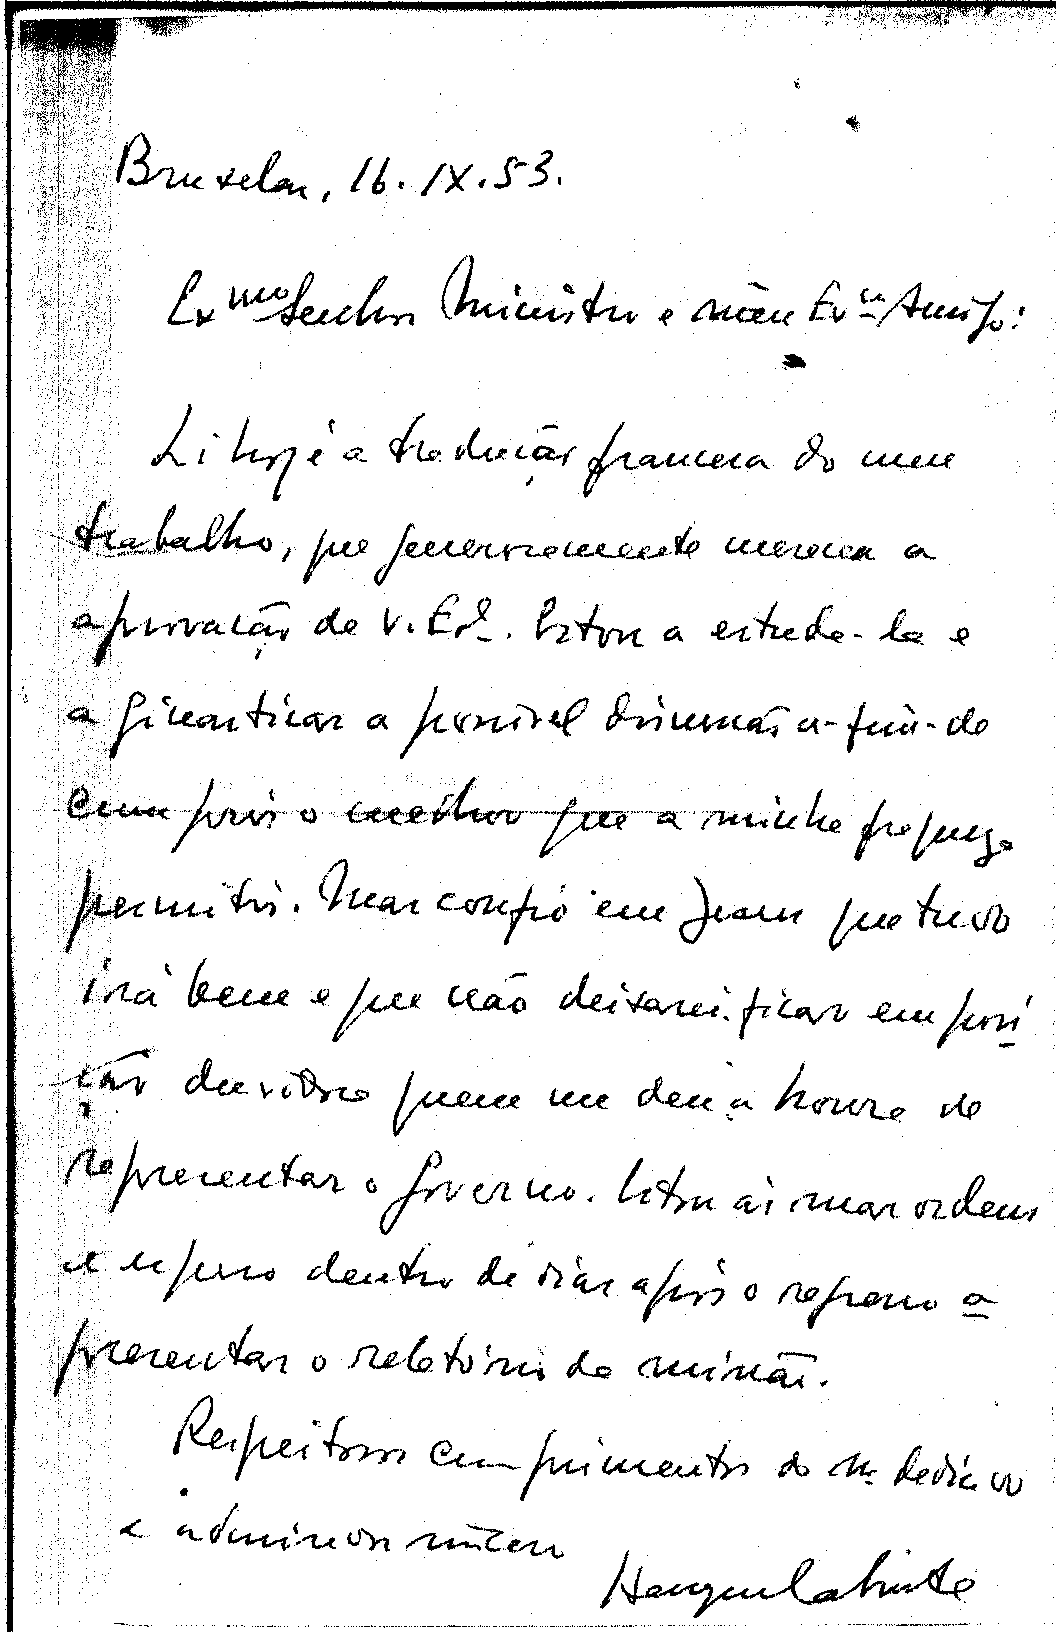 Bruxelas, 16. IX. 53.
Exmo Senhor Ministro e meu Exmo Amigo:
Li hoje a tradução francesa do meu
trabalho, que generosamente mereceu a
aprovação de V. Exª. Estou a estudá-la e
a ginasticar a possível discussão a-fim-de
cumprir o melhor que a minha fraqueza
permitir. Mas confio em Jesus que tudo
irá bem e que não deixarei ficar em posi
ção duvidosa quem me deu a honra de
representar o Governo. Estou às suas ordens
e espero dentro de dias após o regresso a
presentar o relatório da missão.
Respeitosos cumprimentos do m. dedicado
e admirador sincero
Henrique